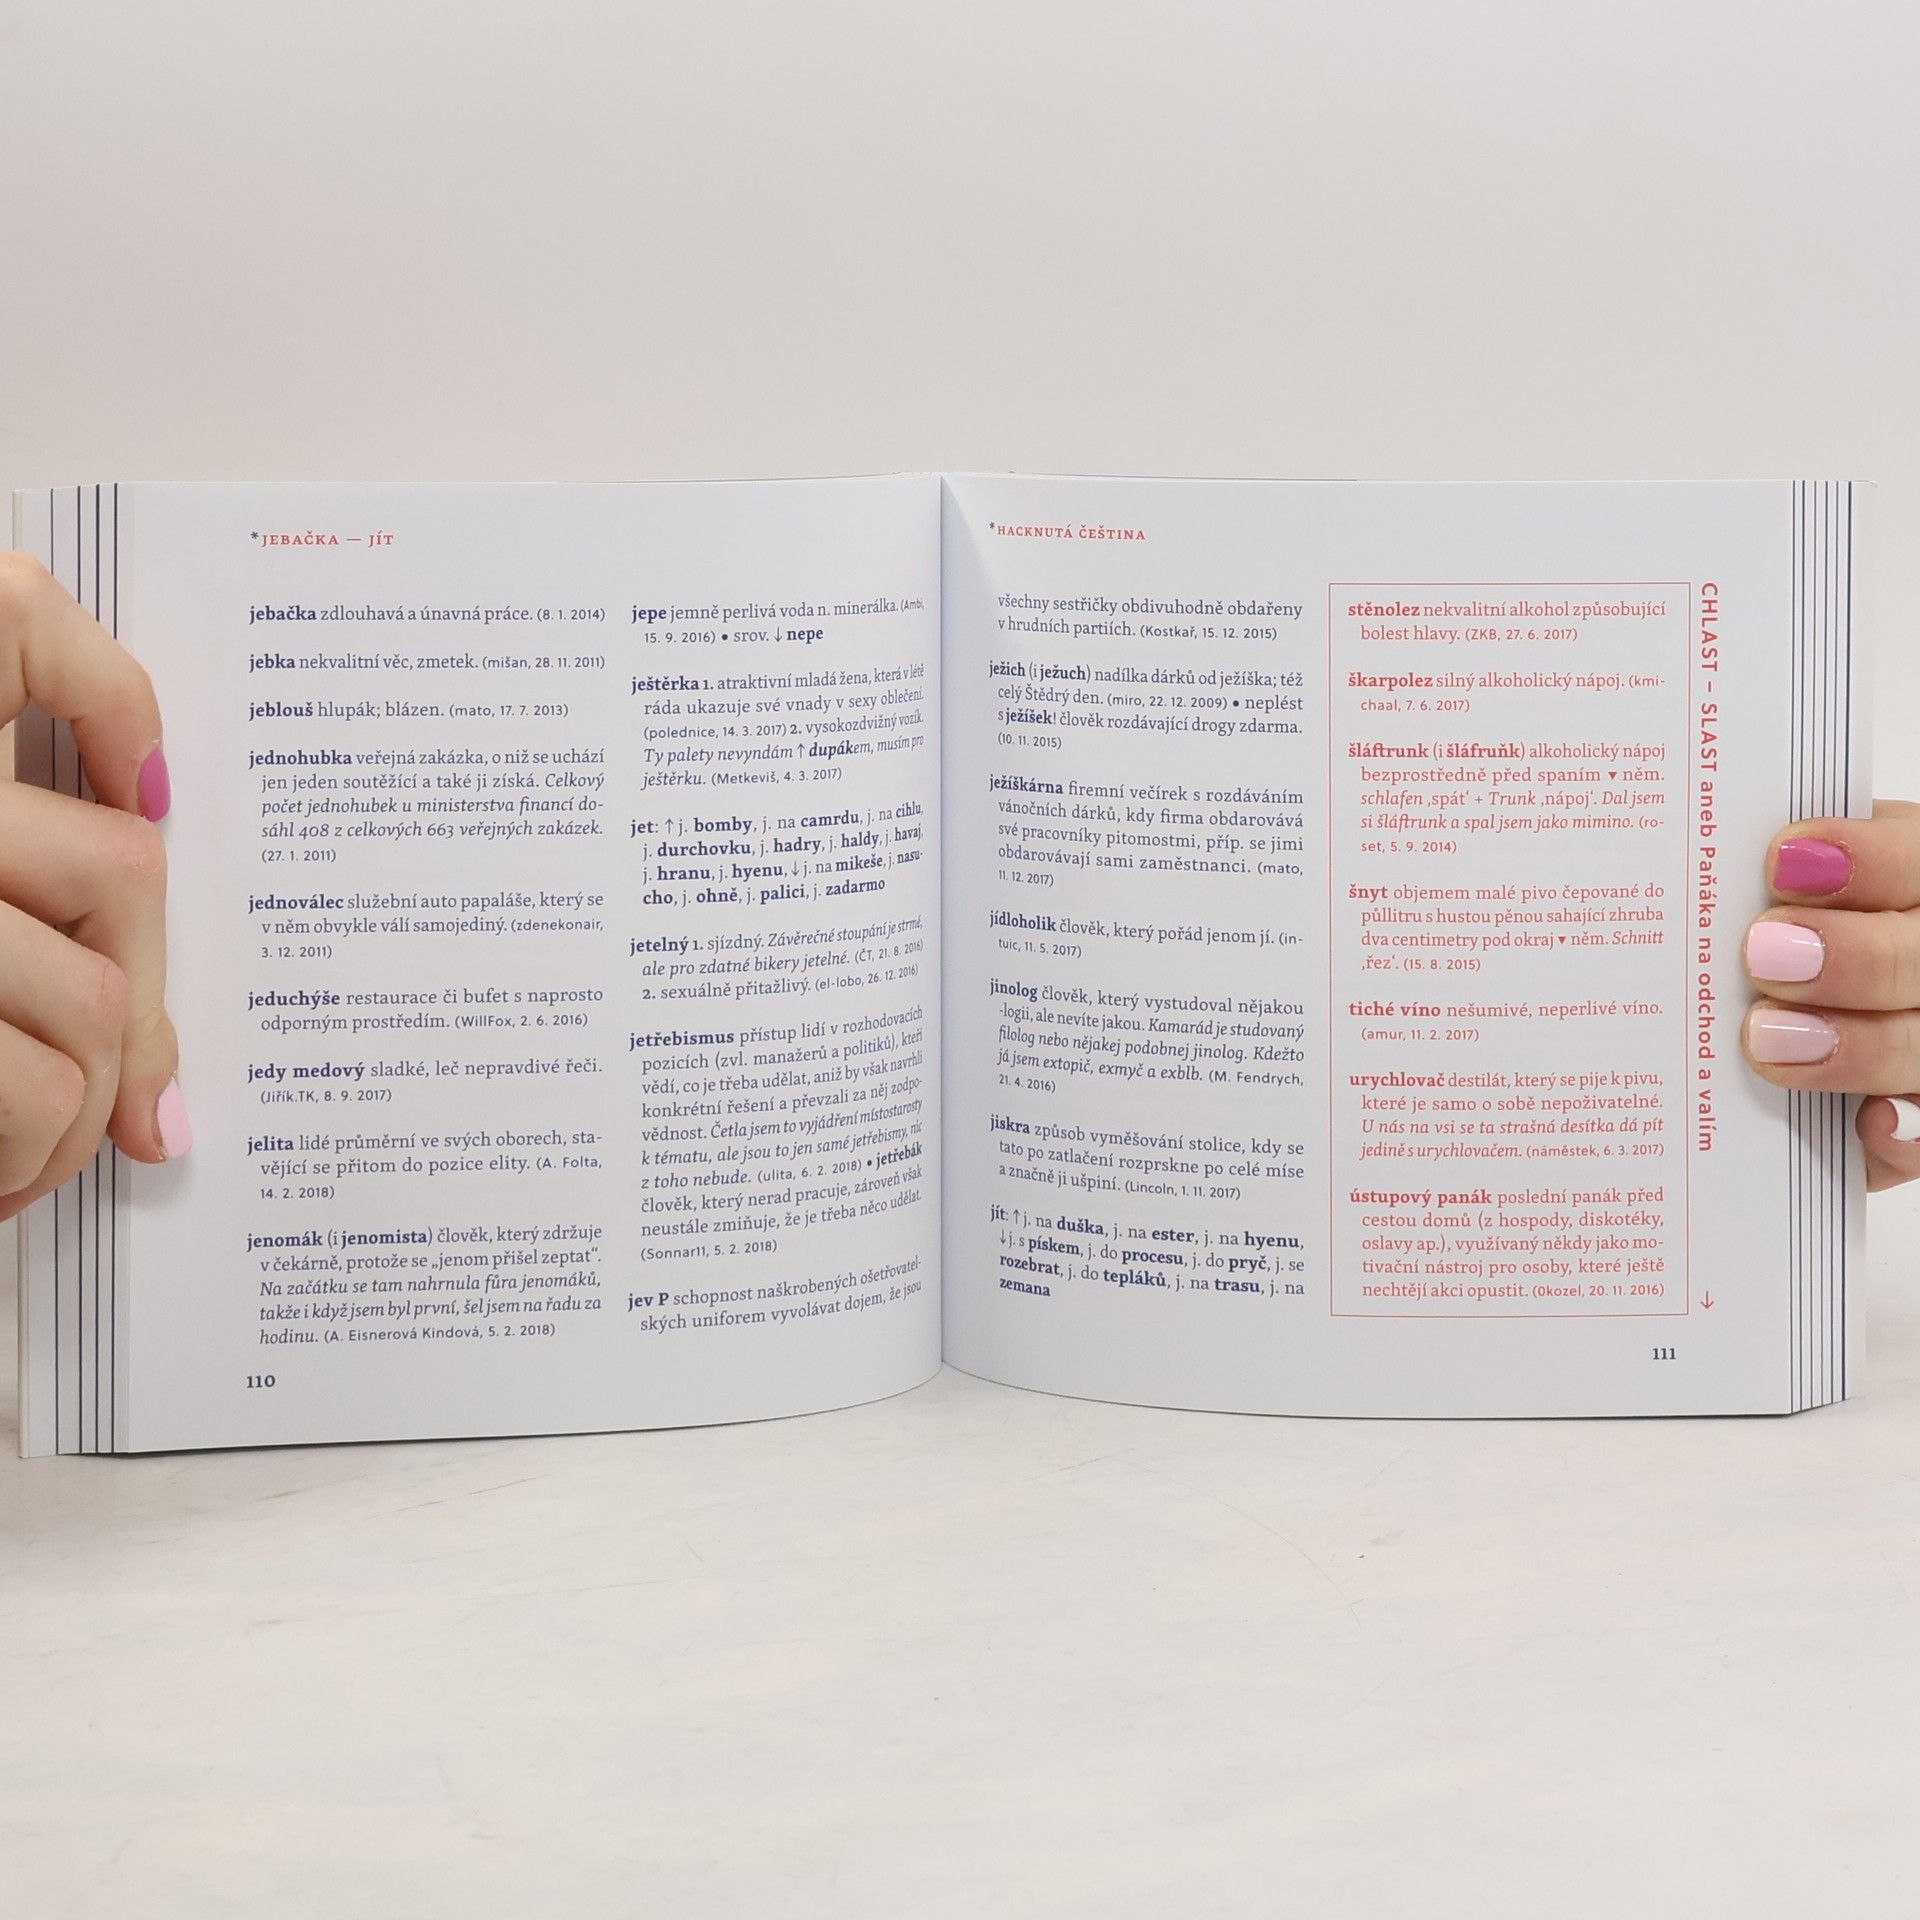 *JEBAČKA — JÍT
jebačka zdlouhavá a únavná práce. (8. 1. 2014)
jebka nekvalitní věc, zmetek. (mišan, 28. 11. 2011)
jeblouš hlupák; blázen. (mato, 17. 7. 2013)
jednohubka veřejná zakázka, o niž se uchází
jen jeden soutěžící a také ji získá. Celkový
počet jednohubek u ministerstva financí do-
sáhl 408 z celkových 663 veřejných zakázek.
(27. 1. 2011)
jednoválec služební auto papaláše, který se
v něm obvykle válí samojediný. (zdenekonair,
3. 12. 2011)
jeduchýše restaurace či bufet s naprosto
odporným prostředím. (WillFox, 2. 6. 2016)
jedy medový sladké, leč nepravdivé řeči.
(Jiřík.TK, 8. 9. 2017)
jelita lidé průměrní ve svých oborech, sta-
vějící se přitom do pozice elity. (A. Folta,
14. 2. 2018)
jenomák (i jenomista) člověk, který zdržuje
v čekárně, protože se „jenom přišel zeptat“.
Na začátku se tam nahrnula fůra jenomáků,
takže i když jsem byl první, šel jsem na řadu za
hodinu. (A. Eisnerová Kindová, 5. 2. 2018)
110
jepe jemně perlivá voda n. minerálka. (Ambi,
15. 9. 2016) • srov. ↓ nepe
ještěrka 1. atraktivní mladá žena, která v létě
ráda ukazuje své vnady v sexy oblečení.
(polednice, 14. 3. 2017) 2. vysokozdvižný vozík.
Ty palety nevyndám ↑ dupákem, musím pro
ještěrku. (Metkeviš, 4. 3. 2017)
jet: ↑ j. bomby, j. na camrdu, j. na cihlu,
j. durchovku, j. hadry, j. haldy, j. havaj,
j. hranu, j. hyenu, ↓ j. na mikeše, j. nasu-
cho, j. ohně, j. palici, j. zadarmo
jetelný 1. sjízdný. Závěrečné stoupání je strmé,
ale pro zdatné bikery jetelné. (ČT, 21. 8. 2016)
2. sexuálně přitažlivý. (el-lobo, 26. 12. 2016)
jetřebismus přístup lidí v rozhodovacích
pozicích (zvl. manažerů a politiků), kteří
vědí, co je třeba udělat, aniž by však navrhli
konkrétní řešení a převzali za něj zodpo-
vědnost. Četla jsem to vyjádření místostarosty
k tématu, ale jsou to jen samé jetřebismy, nic
z toho nebude. (ulita, 6. 2. 2018) • jetřebák
člověk, který nerad pracuje, zároveň však
neustále zmiňuje, že je třeba něco udělat.
(Sonnar11, 5. 2. 2018)
jev P schopnost naškrobených ošetřovatel-
ských uniforem vyvolávat dojem, že jsou
*HACKNUTÁ ČEŠTINA
všechny sestřičky obdivuhodně obdařeny
v hrudních partiích. (Kostkař, 15. 12. 2015)
ježich (i ježuch) nadílka dárků od ježíška; též
celý Štědrý den. (miro, 22. 12. 2009) • neplést
s ježíšek! člověk rozdávající drogy zdarma.
(10. 11. 2015)
ježíškárna firemní večírek s rozdáváním
vánočních dárků, kdy firma obdarovává
své pracovníky pitomostmi, příp. se jimi
obdarovávají sami zaměstnanci. (mato,
11. 12. 2017)
jídloholik člověk, který pořád jenom jí. (in-
tuic, 11. 5. 2017)
jinolog člověk, který vystudoval nějakou
-logii, ale nevíte jakou. Kamarád je studovaný
filolog nebo nějakej podobnej jinolog. Kdežto
já jsem extopič, exmyč a exblb. (M. Fendrych,
21. 4. 2016)
jiskra způsob vyměšování stolice, kdy se
tato po zatlačení rozprskne po celé míse
a značně ji ušpiní. (Lincoln, 1. 11. 2017)
jít: ↑ j. na duška, j. na ester, j. na hyenu,
↓ j. s pískem, j. do procesu, j. do pryč, j. se
rozebrat, j. do tepláků, j. na trasu, j. na
zemana
stěnolez nekvalitní alkohol způsobující
bolest hlavy. (ZKB, 27. 6. 2017)
škarpolez silný alkoholický nápoj. (kmi-
chaal, 7. 6. 2017)
šláftrunk (i šláfruňk) alkoholický nápoj
bezprostředně před spaním ▾ něm.
schlafen ‚spát‘ + Trunk ‚nápoj‘. Dal jsem
si šláftrunk a spal jsem jako mimino. (ro-
set, 5. 9. 2014)
šnyt objemem malé pivo čepované do
půllitru s hustou pěnou sahající zhruba
dva centimetry pod okraj ▾ něm. Schnitt
‚řez‘. (15. 8. 2015)
tiché víno nešumivé, neperlivé víno.
(amur, 11. 2. 2017)
urychlovač destilát, který se pije k pivu,
které je samo o sobě nepoživatelné.
U nás na vsi se ta strašná desítka dá pít
jedině s urychlovačem. (náměstek, 6. 3. 2017)
ústupový panák poslední panák před
cestou domů (z hospody, diskotéky,
oslavy ap.), využívaný někdy jako mo-
tivační nástroj pro osoby, které ještě
nechtějí akci opustit. (0kozel, 20. 11. 2016)
CHLAST – SLAST aneb Paňáka na odchod a valím →
111